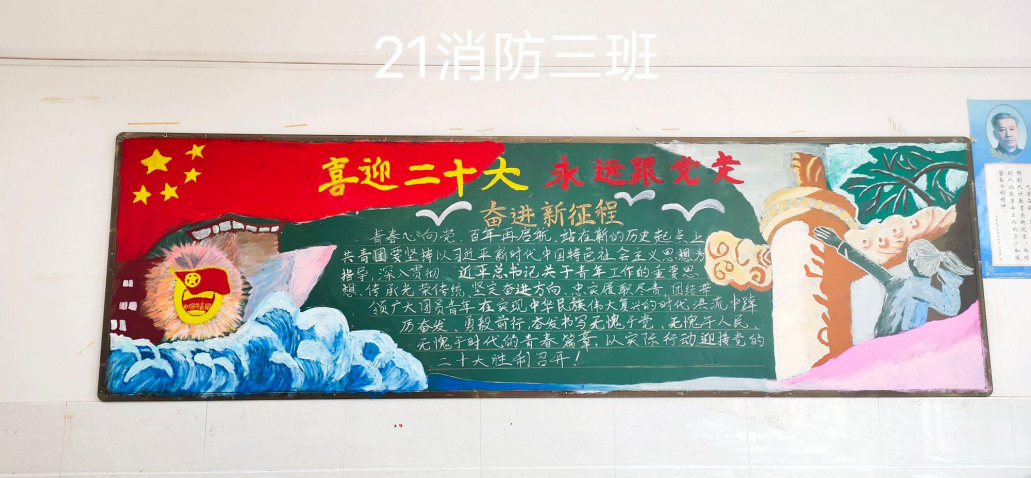 21消防三班
喜迎二十大 永远跟党走
奋进新征程
青春心向党，百年再启航，站在新的历史起点上
共青团要坚持以习近平新时代中国特色社会主义思想为
指导，深入贯彻 习近平总书记关于青年工作的重要思
想，传承光荣传统，坚定奋进方向，忠实履职尽责，团结带
领广大团员青年在实现中华民族伟大复兴的时代洪流中踔
厉奋发，勇毅前行，奋发书写无愧于党，无愧于人民，
无愧于时代的青春篇章，以实际行动迎接党的
二十大胜利召开！